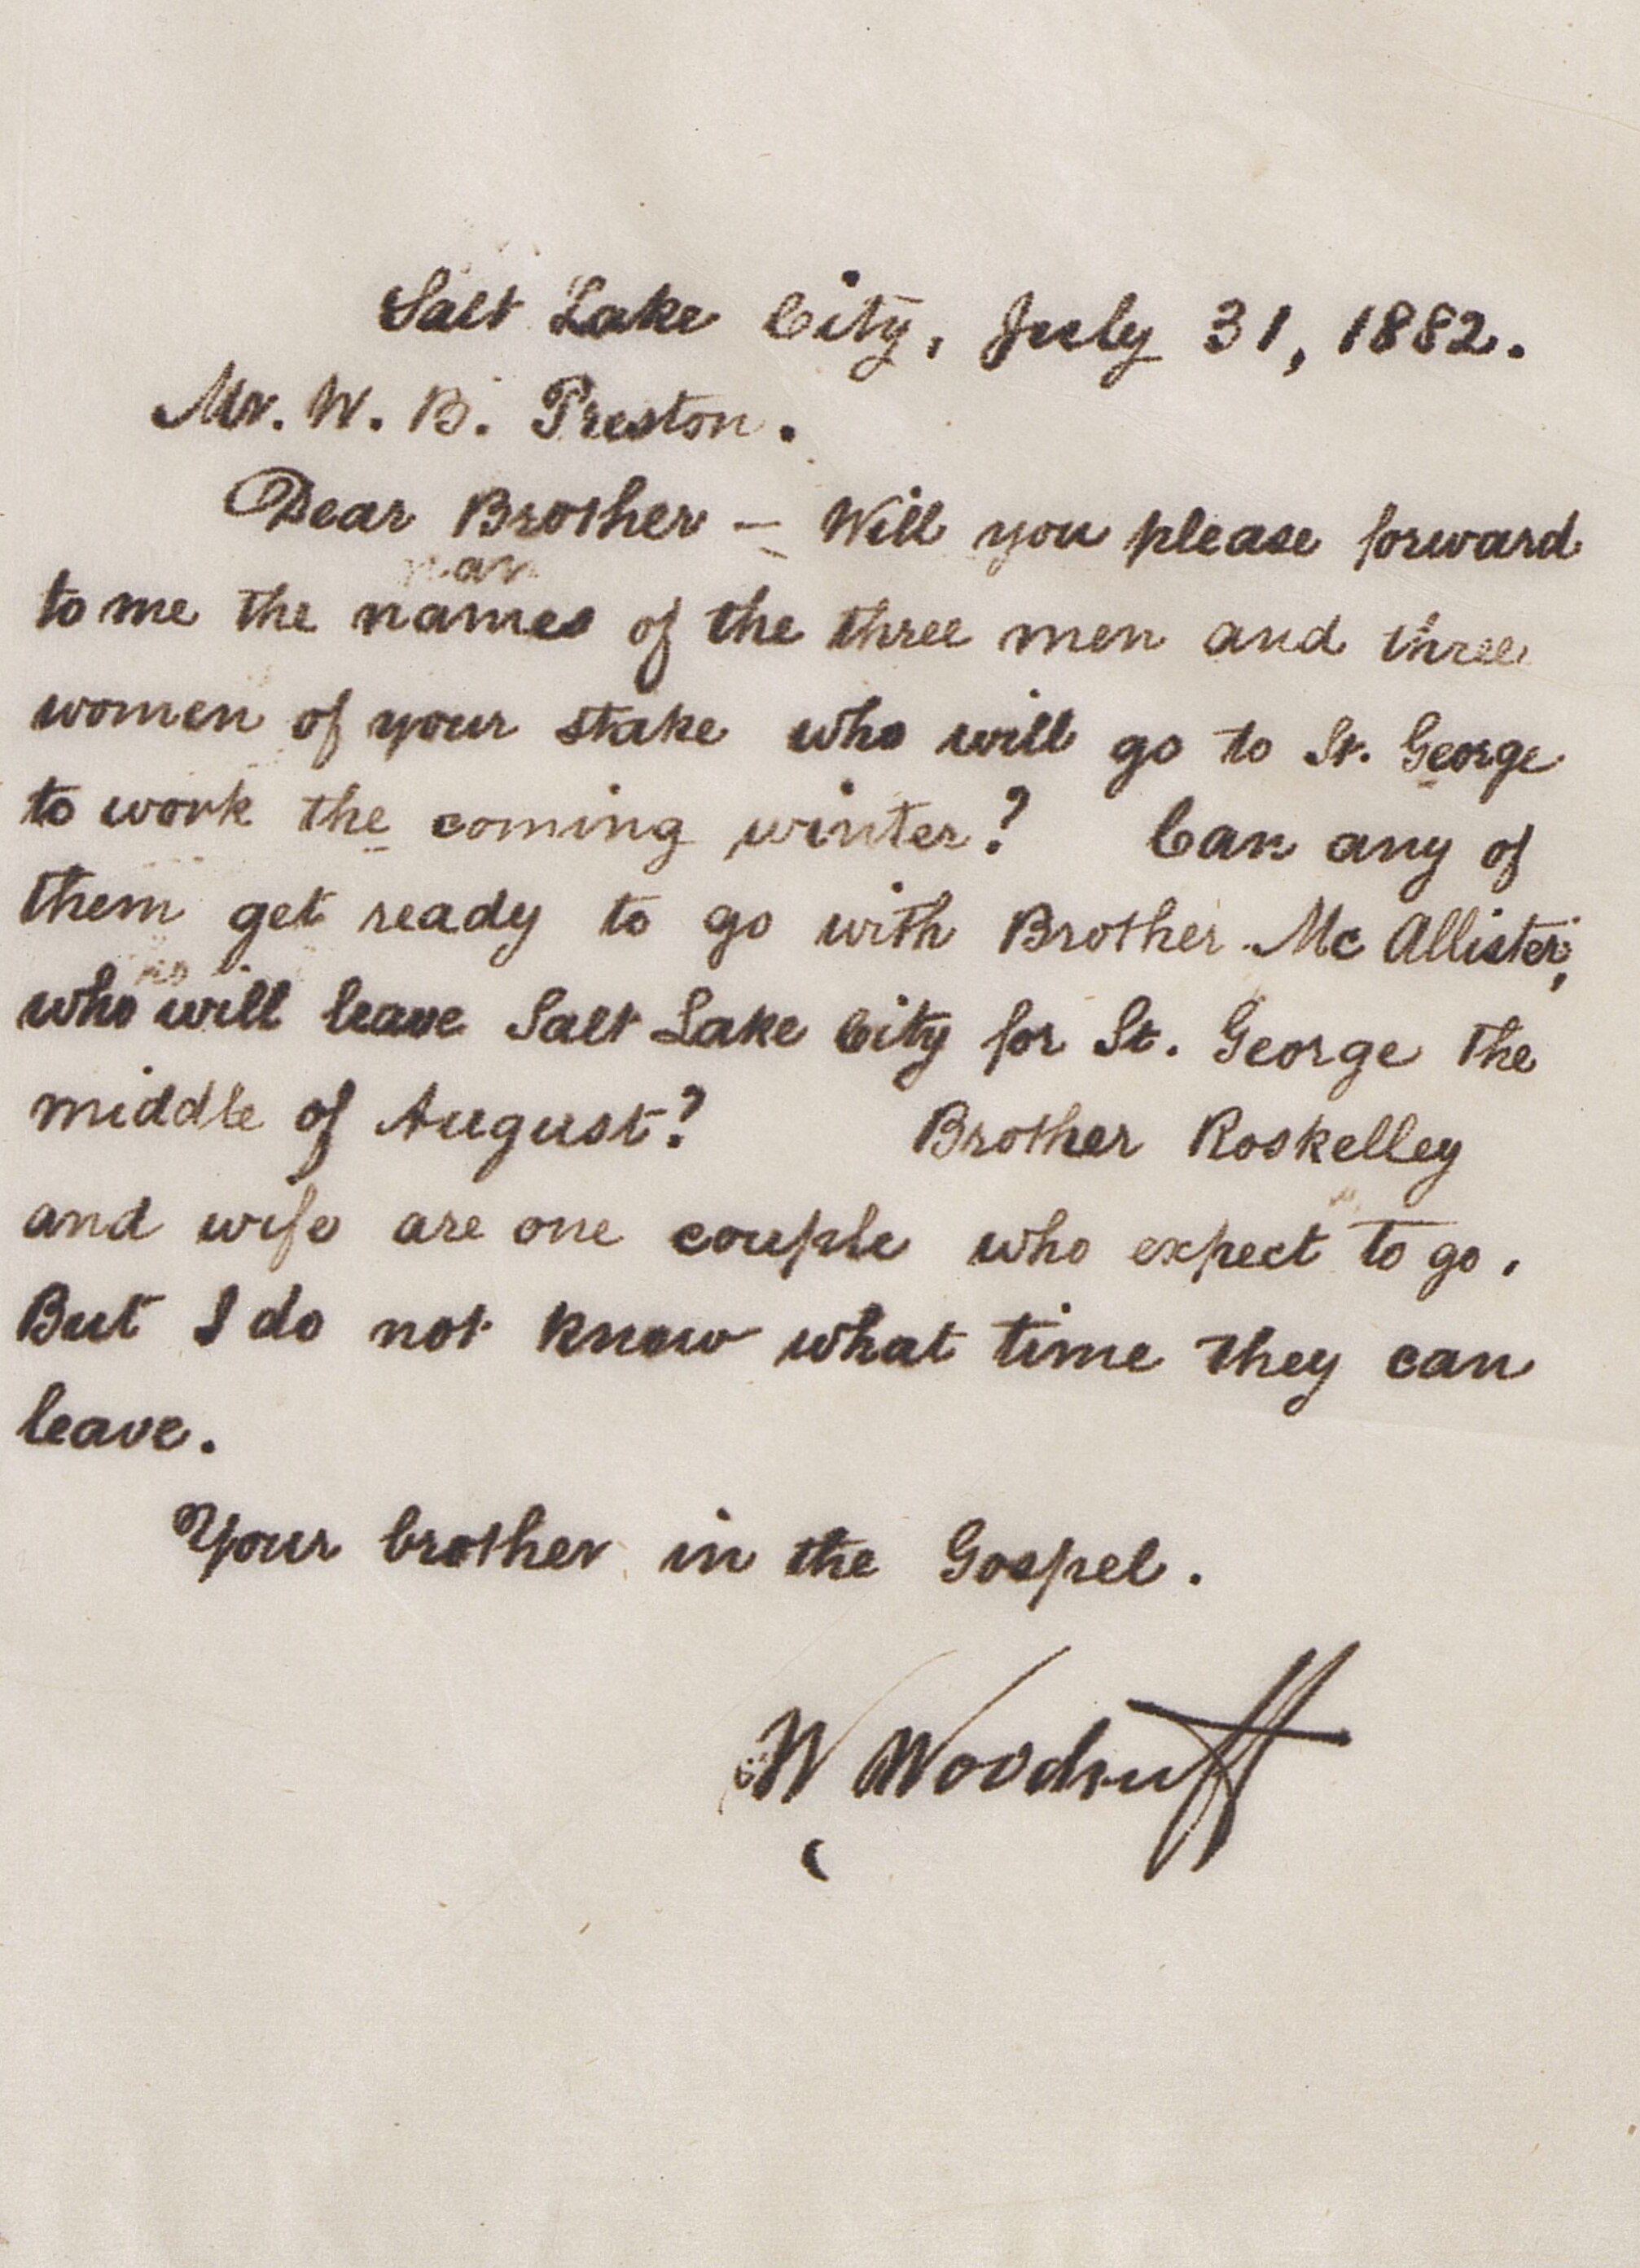 Salt Lake City, July 31, 1882.
Mr. W. B. Preston.
Dear Brother — Will you please forward
to me the names of the three men and three
women of your stake who will go to St. George
to work the coming winter? Can any of
them get ready to go with Brother McAllister,
who will leave Salt Lake City for St. George the
middle of August? Brother Roskelley
and wife are one couple who expect to go.
But I do not know what time they can
leave.
Your brother in the Gospel.
W Woodruff